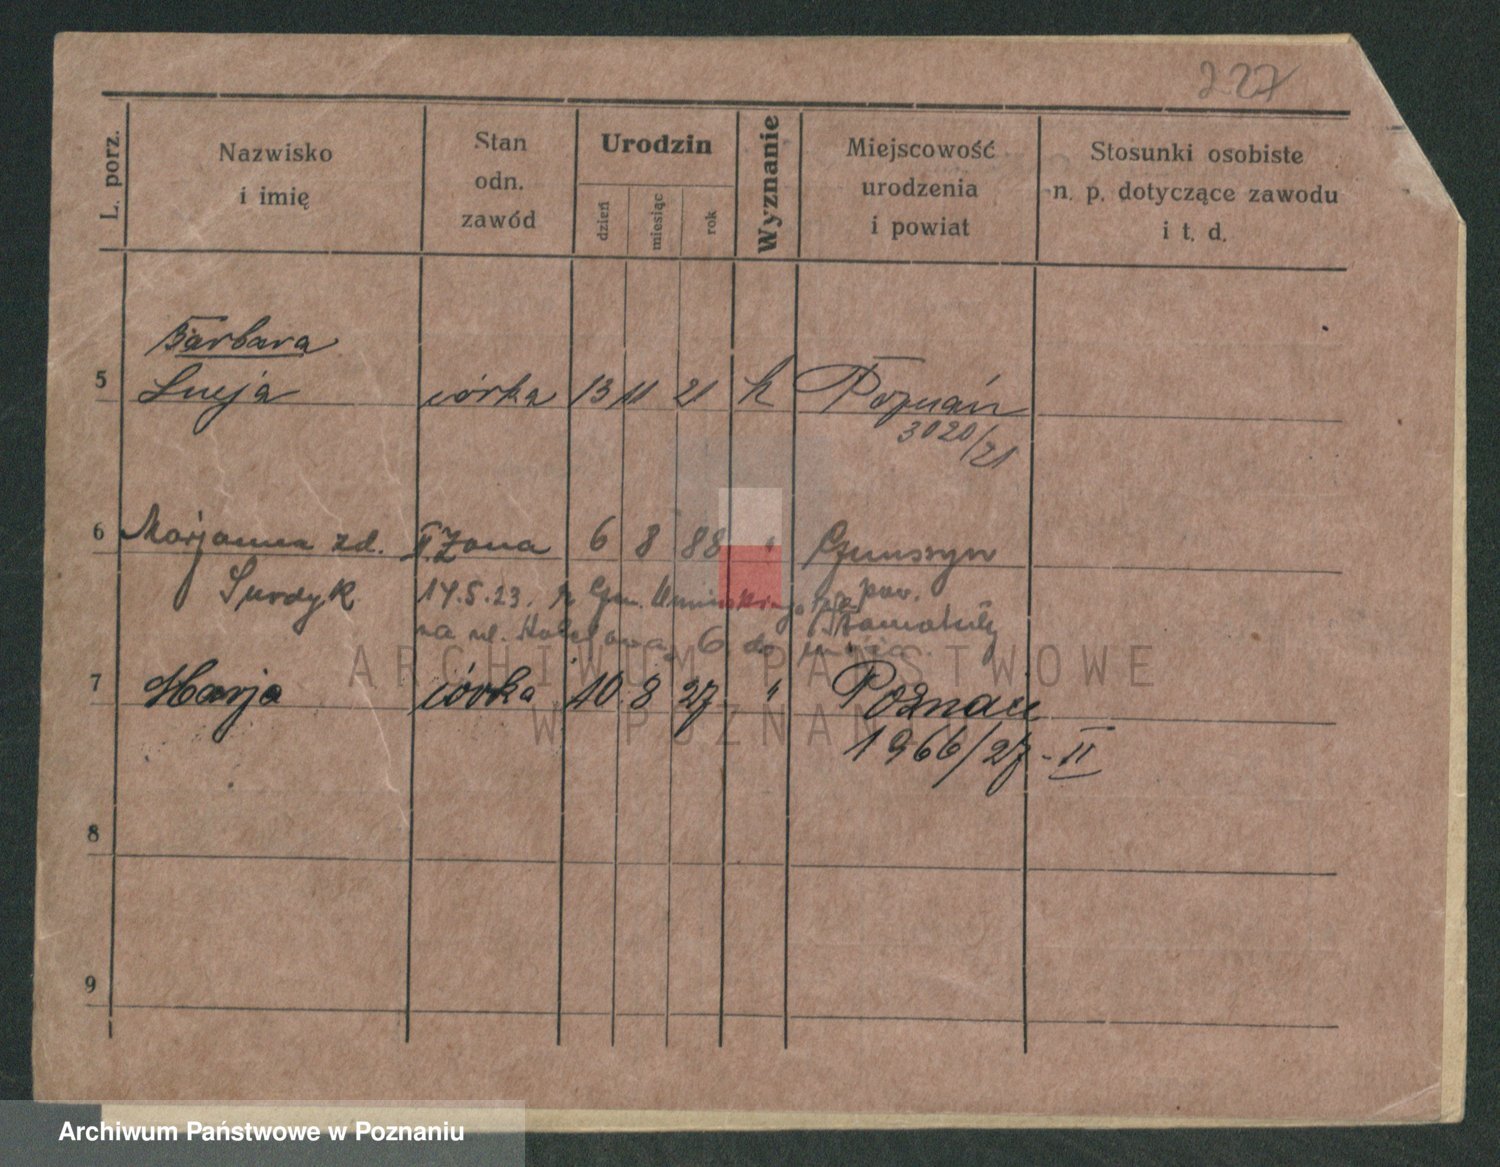 227
L. porz.
Nazwisko
i imię
Stan
odn.
zawód
Urodzin
dzień
miesiąc
rok
Wyznanie
Miejscowość
urodzenia
i powiat
Stosunki osobiste
n. p. dotyczące zawodu
i t. d.
Barbara
5 Lucja córka 13 11 21 k Poznań
3020/21
6 Marjanna zd. II. Żona 6 8 88 "
Surdyk 14.5.23. pow.
na ul. 6 do
7 Marja córka 10 8 27 " Poznań
1966/27-II
8
9
ARCHIWUM PAŃSTWOWE
W POZNANIU
Archiwum Państwowe w Poznaniu